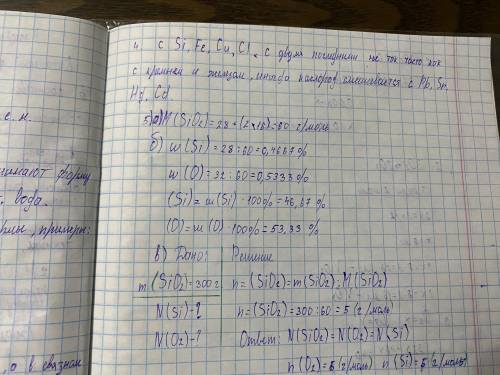 4. с Si, Fe, Cu, Cl, с двумя последними не так часто, как
с кремнем и железом, иногда кислород смешивается с Pb, Sn,
Hg, Cd.
5) а) M(SiO2)=28+(2×16)=60 г/моль
б) w(Si)=28:60=0,4667%
w(O)=32:60=0,5333%
(Si)=w(Si)·100%=46,67%
(O)=w(O)·100%=53,33%
в) Дано: Решение
m(SiO2)=300г n=(SiO2)=m(SiO2):M(SiO2)
N(Si)-? n=(SiO2)=300:60=5(г/моль)
N(O2)-? Ответ: N(SiO2)=N(O2)=N(Si)
n(O2)=5(г/моль) n(Si)=5(г/моль)
с. н.
форму
вода.
примеры:
, а в связном